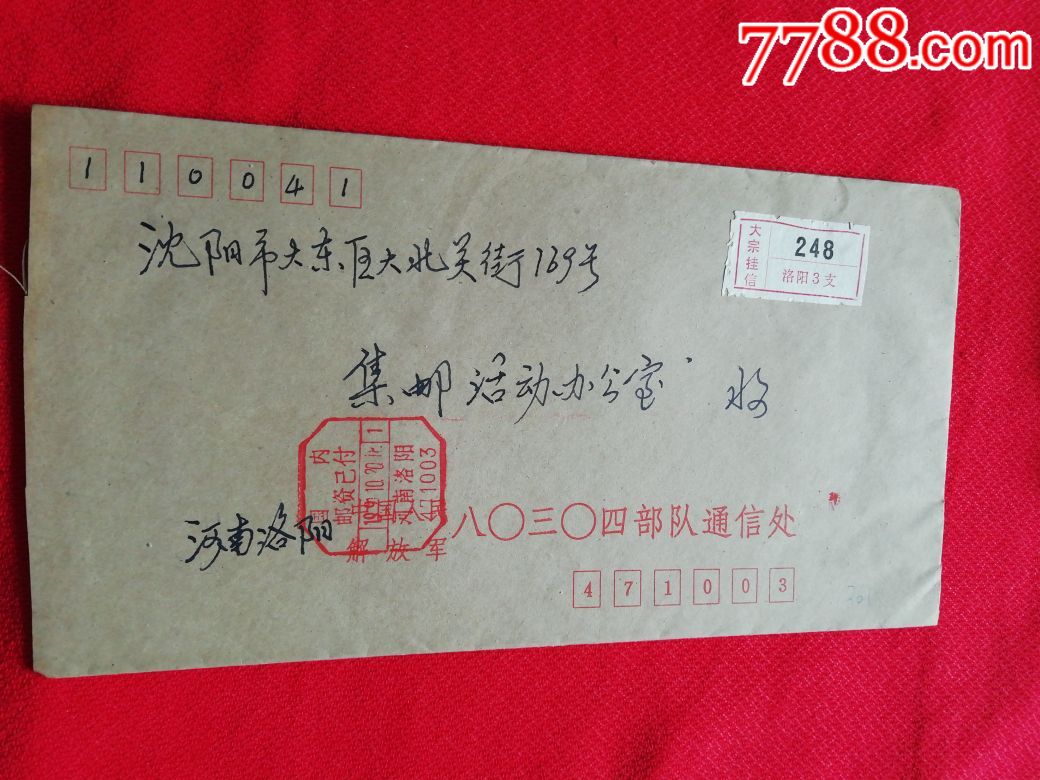 7788.com
110041
沈阳市大东区大北关街139号
大宗挂信
248
洛阳3支
集邮活动办公室 收
国内
邮资已付
河南洛阳
471003
河南洛阳
中国人民解放军
八〇三〇四部队通信处
471003